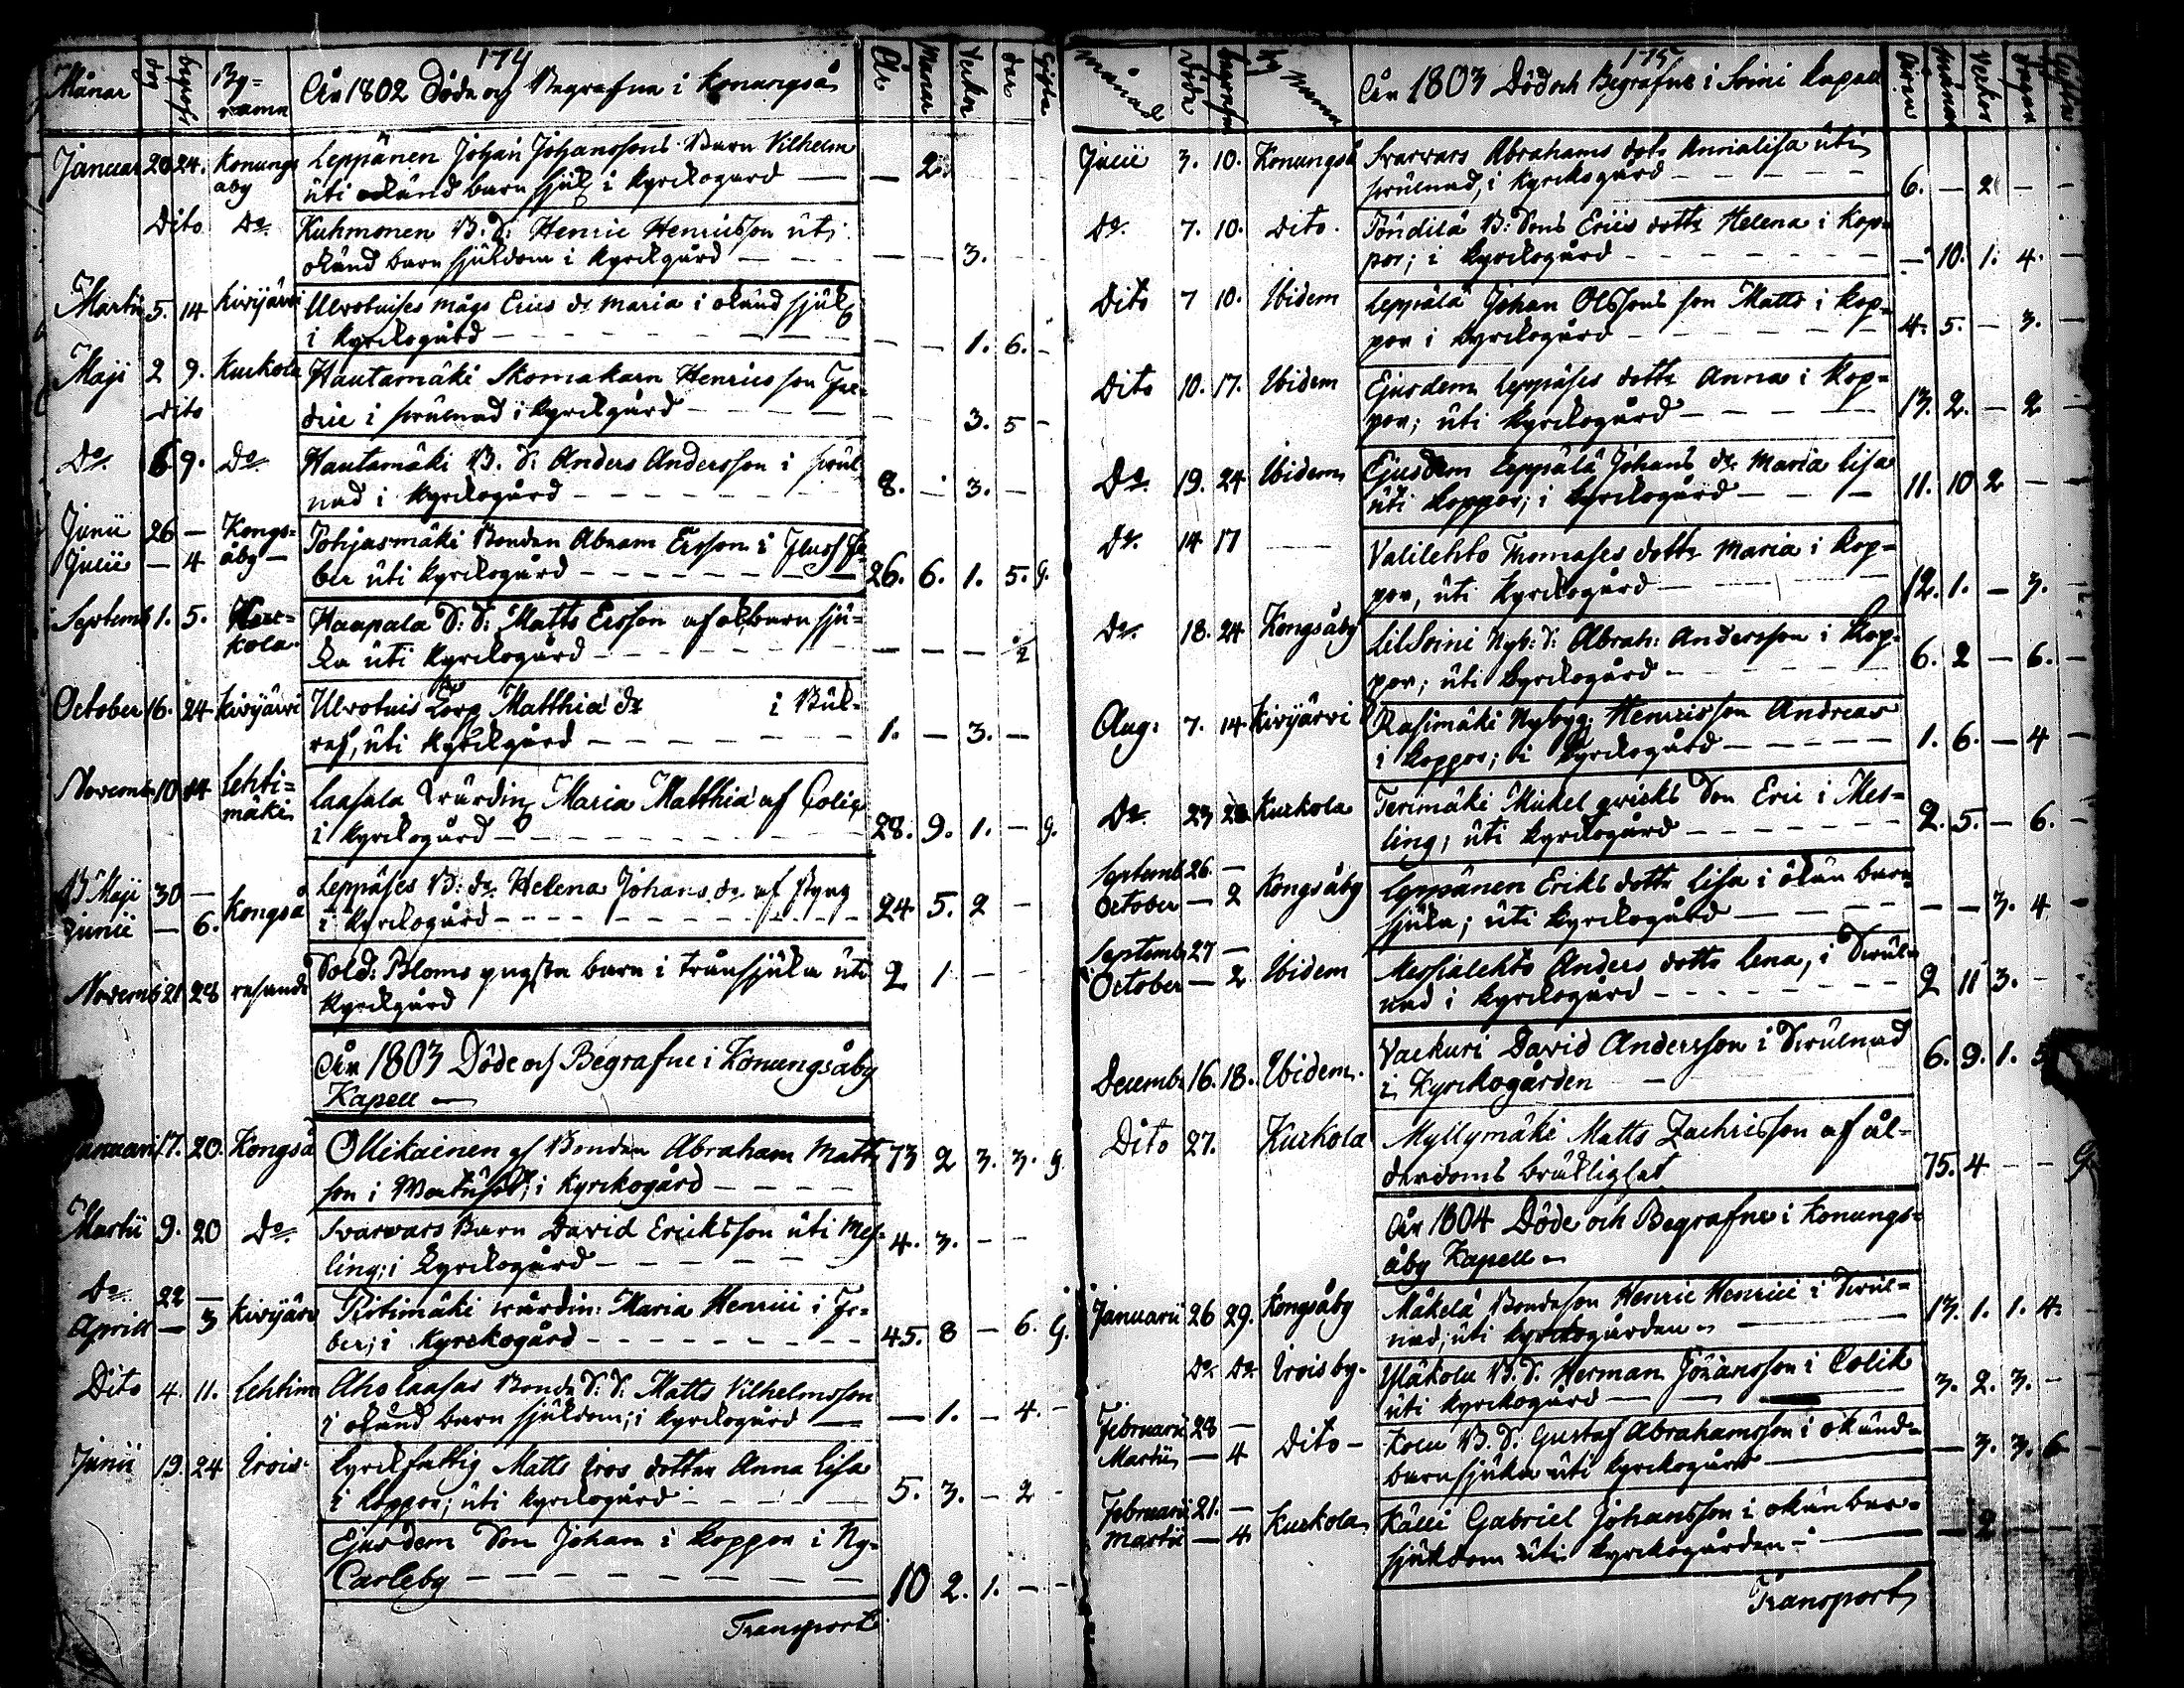 174
Månar dag begrafn By=namn Åhr 1802 Döde och Begrafne i Konungså År Månar Veckor dar Gifta
Januar 20 24. Konungs åby Leppänen Johan Johanssons Barn Vilhelm
uti okänd barn sjukd i kyrckogård — — 2.
Dito Do. Kuhmonen B. S: Henric Henricsson uti
okänd barn sjukdom i kyrckgård — — — 3.
Martii 5. 14 Kivijärvi Ulvotuises mågs Erics dr Maria i okänd sjukd
i kyrckogård — — — 1. 6. -
Maji 2 9. Kurkola Hautamäki Skomakarn Henrics son Fre=
Dito dric i strålnad i kyrckgård — — 3. 5 -
Do. 6 9. Do. Hautamäki B. S: Anders Andersson i strål
nad i kyrckogård — 8. — 3. —
Junii 26 — Kongs=
Julii — 4 åby — Pohjasmäki Bonden Abram Ersson i Fluss fe
ber uti kyrckogård — 26. 6. 1. 5. g.
Septemb 1. 5. Kur=
kola. Haapala S: S: Matts Ersson af ok barn sju=
ka uti kyrckogård — — — 2
October 16. 24 Kivijärvi Ulvotuis Torp Matthiæ dr i Bul=
ras, uti kyrckgård — 1. — 3. —
Novemb 10 14 Lehti=
mäki Laasala Wärdin Maria Matthiæ af Colig
i kyrckogård — 28. 9. 1. — g.
B Maji 30 — Kongså Leppäses B: dr Helena Johans dr af styng
Junii — 6. i kyrckogård — 24 5. 2 —
Novemb 21 28 resande Sold: Bloms yngsta barn i transjuka uti
kyrckgård 2 1 — —
Åhr 1803 Döde och Begrafne i Konungsåby
Kapell —
Januari 17. 20. Kongså Ollikainen gl Bonden Abraham Matts
son i i kyrckogård — 73 2 3. 3. g
Martii 9. 20 Do. Svarvars Barn David Ericksson uti Mes=
ling; i kyrckogård — 4. 3. — —
Do. 22 — Kivijärv Pirtimäki wärdin: Maria Henrici i Fe=
Aprill — 3 ber; i kyrckogård — 45. 8 — 6. g.
Dito 4. 11. Lehtim Aho Laasas Bonde S: S: Matts Vilhelmsson
i okänd barn sjukdom; i kyrckogård — — 1. — 4. -
Junii 19. 24 Irois Kyrckfattig Matts Iros dotter Anna Lisa
i koppor; uti kyrckogård — 5. 3. — 2 -
Ejusdem Son Johan i koppor i Ny=
Carleby — 10 2. 1. — -
Transport
175
Månad döde begrafn by Namn Åhr 1803 Död och Begrafne i Soini Kapell Åren Månar Veckor dagar Gifta
Julii 3. 10. Konungså Svarvars Abrahams dotr Annalisa uti
strålnad, i kyrckogård — 6. — 2 — -
Do. 7. 10. Dito. Töndilä B: Sons Erics dottr Helena i kop=
por; i kyrckogård — — 10. 1. 4. —
Dito 7 10. Ibidem Leppälä Johan Olssons son Matts i kop=
por i kyrckogård — 4. 5. — 3. —
Dito 10. 17. Ibidem Ejusdem Leppäses dottr Anna i kop=
por; uti kyrckogård — 13. 2. — 2 —
Do. 19. 24 Ibidem Ejusdem Leppälä Johans dr Maria Lisa
uti koppor; i kyrckogård — 11. 10 2 — —
Do. 14 17 — Valilehto Thomases dottr Maria i kop=
por, uti kyrckogård — 12. 1. — 3.
Do. 18. 24 Kongsåby LilSoini Nyb: S: Abrah: Andersson i kop=
por; uti kyrckogård — 6. 2 — 6. —
Aug: 7. 14 Kivijärvi Rasimäki Nybyg: Henricsson Andreas
i koppor; i kyrckogård — 1. 6. — 4 —
Do. 23 28 Kurkola Terimäki Mickel Son Eric i Mes=
ling; uti kyrckogård — 2. 5. — 6. —
Septemb 26. —
October — 2 Kongsåby Leppänen Eriks dottr Lisa i okän barn
sjuka; uti kyrckogård — — — 3. 4 —
Septemb 27 —
October — 2. Ibidem Messialehto Anders dottr Lena, i Strål=
nad i kyrckogård — 2 11 3. —
Decemb 16. 18. Ibidem. Vackuri David Andersson i Strålnad
i Kyrckogården — 6. 9. 1. 5
Dito 27. Kurkola Myllymäki Matts Zachrisson af ål=
derdoms bräcklighet 75. 4 — — g.
Åhr 1804 Döde och Begrafne i Konungs=
åby Kapell —
Januarii 26 29. Kongsåby Mäkelä Bondeson Henric Henrici i Strål=
nad; uti kyrckogården — 13. 1. 1. 4.
Do Do Irois by. Ylikolu B. S. Herman Johansson i Colik
uti kyrckogård — 3. 2. 3. —
Februarii 28 —
Martii — 4 Dito — Kolu B. S. Gustaf Abrahamsson i okänd=
barnsjuka uti kyrckogård — — 3. 3. 6
Februarii 21. —
Martii — 4 Kurkola Källi Gabriel Johansson i okän bar=
sjukdom uti kyrckogården — — 2 — —
Transport